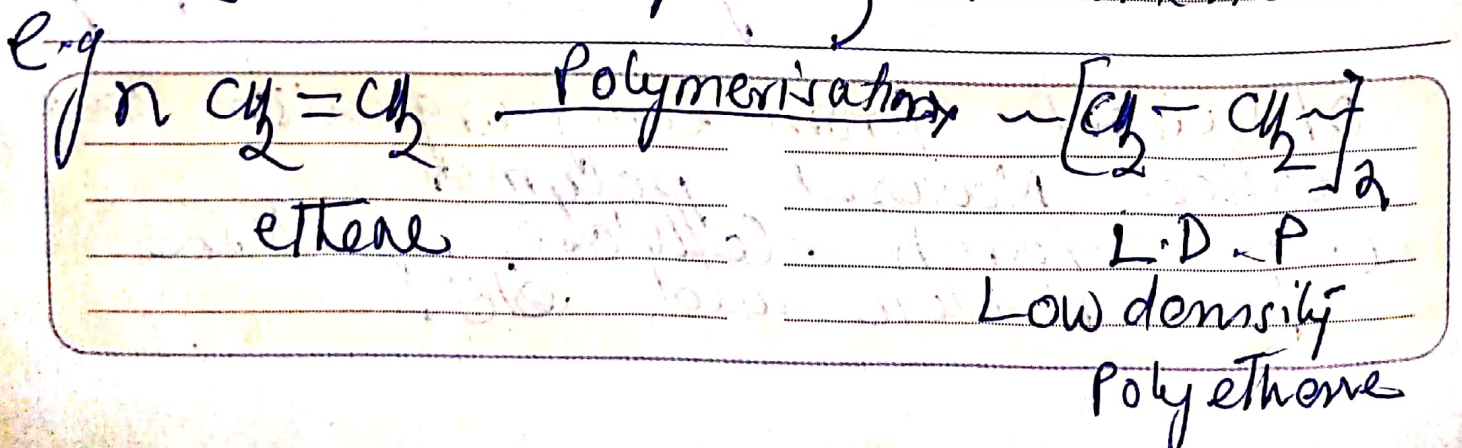 e.g
n CH2 = CH2 Polymerisation ~[CH2 - CH2~]2
ethene L.D.P
Low demsity
Polyethene